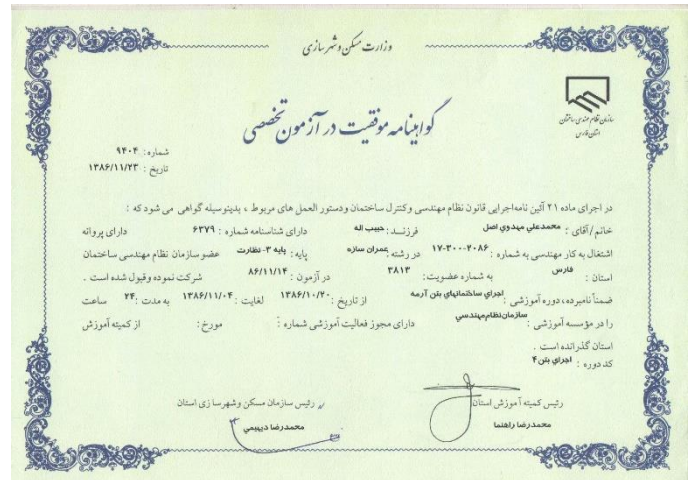 وزارت مسکن و شهرسازی
سازمان نظام مهندسی ساختمان
استان فارس
گواهینامه موفقیت در آزمون تخصصی
شماره : ۹۴۰۴
تاریخ : ۱۳۸۶/۱۱/۲۳
در اجرای ماده ۲۱ آئین نامه اجرایی قانون نظام مهندسی وکنترل ساختمان ودستور العمل های مربوط ، بدینوسیله گواهی می شود که :
خانم /آقای : محمدعلي مهدوي اصل فرزنـد : حبیب اله دارای شناسنامه شماره : ۶۳۷۹ دارای پروانه
اشتغال به کار مهندسی به شماره : ۱۷-۳۰۰-۲۰۸۶ در رشته : عمران سازه پایه : پایه ۳- نظارت عضو سازمان نظام مهندسی ساختمان
استان : فارس به شماره عضویت : ۳۸۱۳ در آزمون : ۸۶/۱۱/۱۴ شرکت نموده وقبول شده است .
ضمناً نامبرده، دوره آموزشی : اجراي ساختمانهاي بتن آرمه از تاریخ : ۱۳۸۶/۱۰/۲۰ لغایت : ۱۳۸۶/۱۱/۰۴ به مدت : ۲۴ ساعت
را در مؤسسه آموزشی : سازمان نظام مهندسي دارای مجوز فعالیت آموزشی شماره : مورخ : از کمیته آموزش
استان گذرانده است .
کد دوره : اجراي بتن ۴
رئیس کمیته آموزش استان
محمدرضا راهنما
رئیس سازمان مسکن وشهرسازی استان
محمدرضا